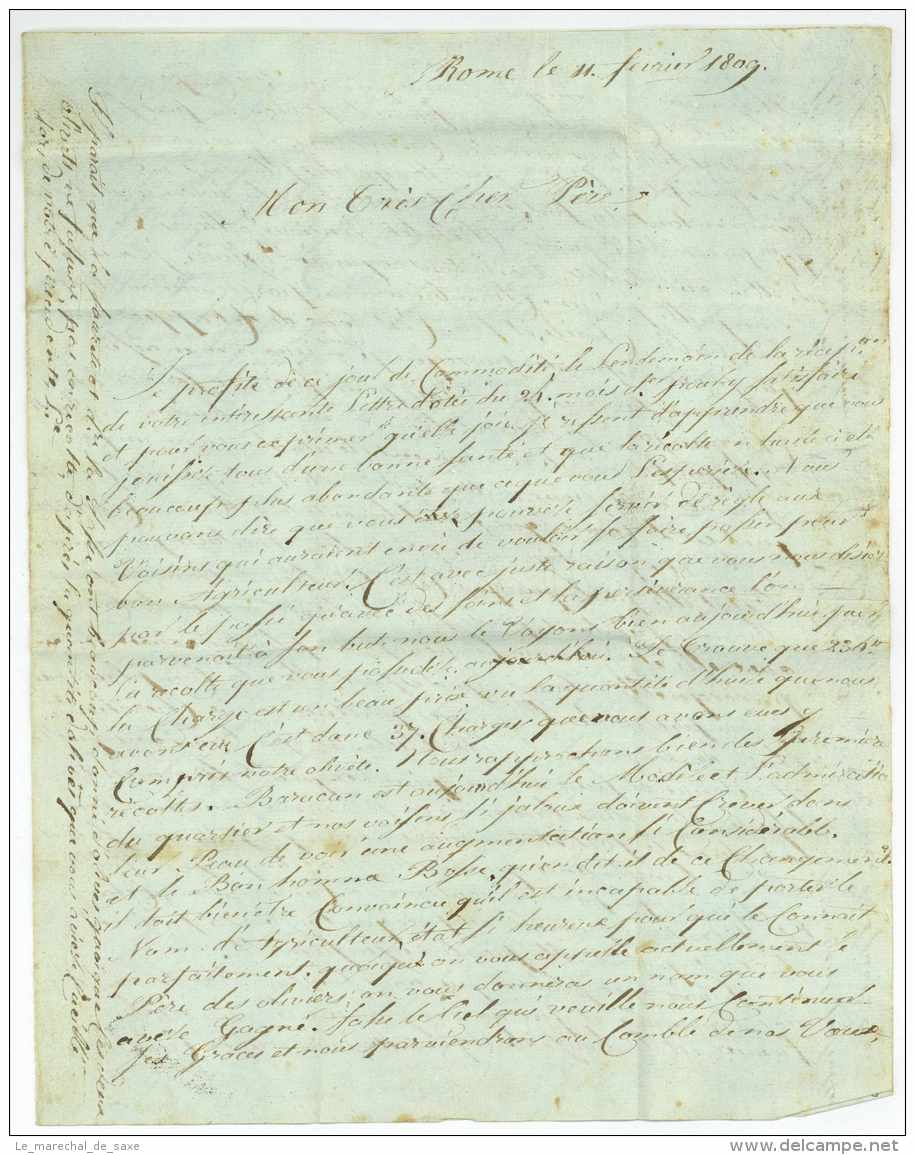 Rome le 11. fevrier 1809.
Mon très Cher Père
Je profite de ce jour de Commodité le lendemain de la récept.on
de votre intéressante Lettre datée du 24. mois d.er pour y satisfaire
et pour vous exprimer quelle joie je ressent d'apprendre que vous
jouissiez tous d'une bonne santé et que la récolte en huile a été
beaucoup plus abondante que ce que vous l'espériez. Nous
pouvons dire que vous pouvez servir de règle aux
Voisins qui auraient envie de vouloir se faire passer pour
bon Agriculteur. C'est avec juste raison que vous nous disiez
par le passé qu'avec des soins et la persévérance l'on
parvenait à son but. nous le Voyons bien aujourd'hui par
la récolte que vous possédés. aujourd'hui. Je trouve que 23 #
la Charge est un beau prix vu la quantité d'huile que nous
avons eue C'est donc 37. Charges que nous avons eues y
Compris notre olivète. Nous rapprochons bien des premières
récoltes. Baracan est aujourd'hui le Modèle et l'admiration
du quartier et nos voisins si jaloux doivent Crever dans
leur Peau de voir une augmentation si Considérable.
et le Bonhomme Bosse, qu'en dit il de ce Changement.
il doit bien être Convaincu qu'il est incapable de porter le
Nom d'Agriculteur, état si heureux pour qui le Connait
parfaitement. quoiqu'on vous appelle actuellement le
Père des oliviers, on vous donneras un nom que vous
avese Gagné. Fasse le Ciel qui veuille nous Continuer
ses Graces et nous parviendrons au Comble de nos Voeux,
Il parait que la et la ont beaucoup donné d'olives quoique les deux
olivettes ne fussent pas conséq.tes, d'après la quantité d'olives que vous avese Cueillie
lors de votre précédente &a
Le_marechal_de_saxe
www.delcampe.net